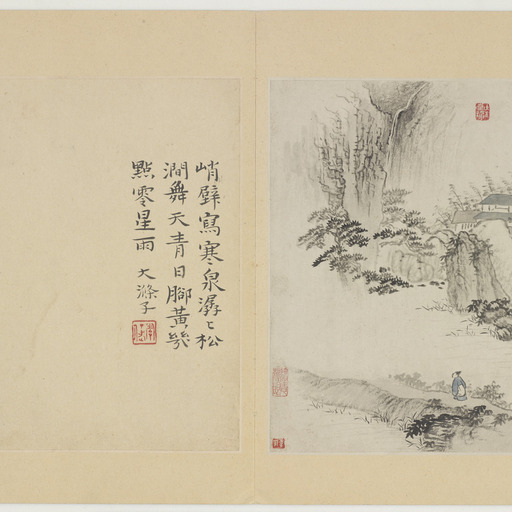 峭壁寫寒泉潺〻松
澗舞天青日腳黃幾
點零星雨 大滌子